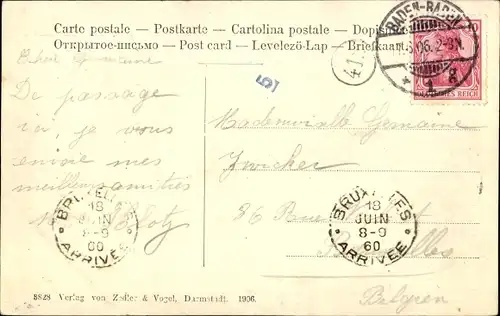 Carte postale — Postkarte — Cartolina postale — Dopis
Открытое-письмо — Post card — Levelező-Lap — Briefkaart
BADEN-BADEN
6.06. 2-3N.
DEUTSCHES REICH
41
Chère Germaine
De passage
ici, je vous
envoie mes
meilleures amitiés
Mademoiselle Germaine
Zwicker
86 Rue
Bruxelles
Belgien
BRUXELLES
18
JUIN
8-9
60
ARRIVÉE
BRUXELLES
18
JUIN
8-9
60
ARRIVÉE
8828 Verlag von Zedler & Vogel, Darmstadt. 1906.